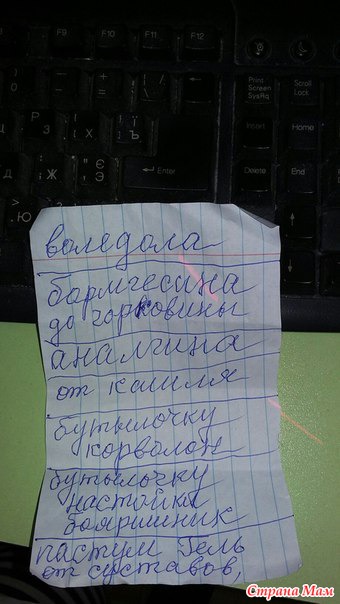 F9
F10
F11
F12
Print
Screen
SysRq
Scroll
Lock
Insert
Home
Delete
End
Enter
Ъ
Ж
Є
Ю
воледола
бормгесина
до горковины
аналгина
от кашля
бутылочку
корволон
бутылочку
настойки
бояришник
пастум Гель
от суставов,
Страна Мам